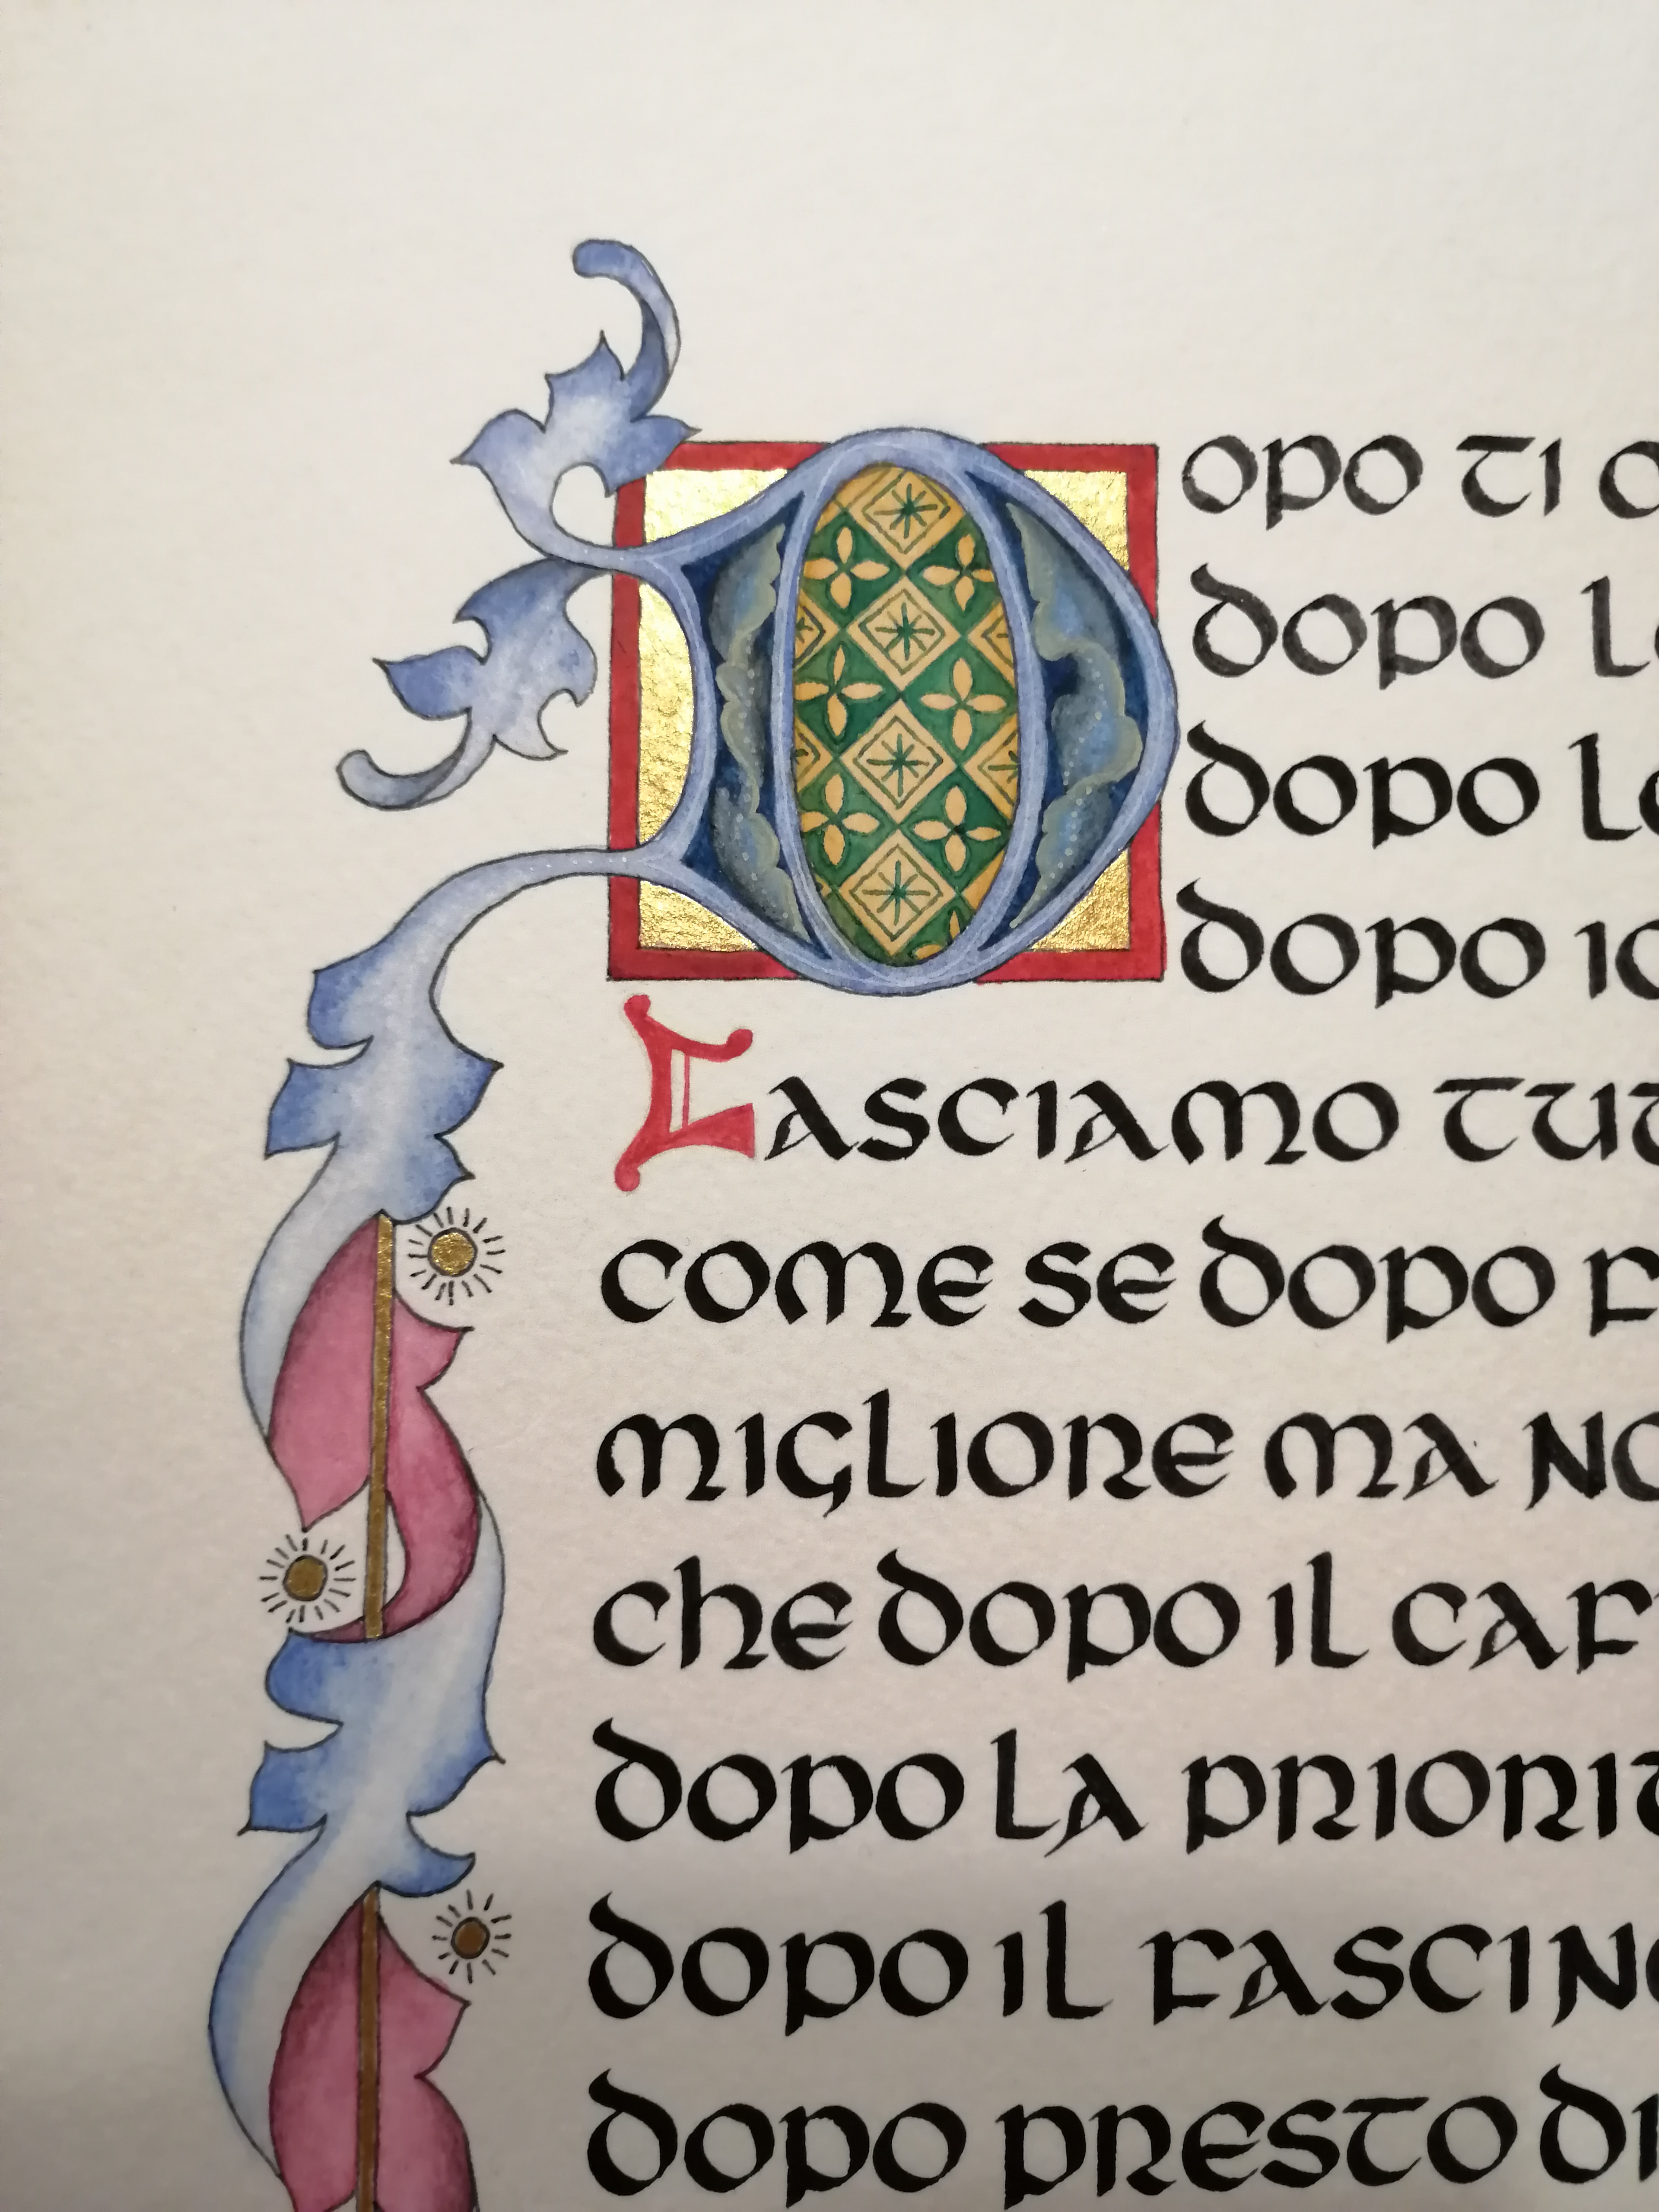 Dopo ti
dopo l
dopo l
dopo io
Lasciamo tut
come se dopo f
migliore ma no
che dopo il caf
dopo la priorit
dopo il fascin
dopo presto di